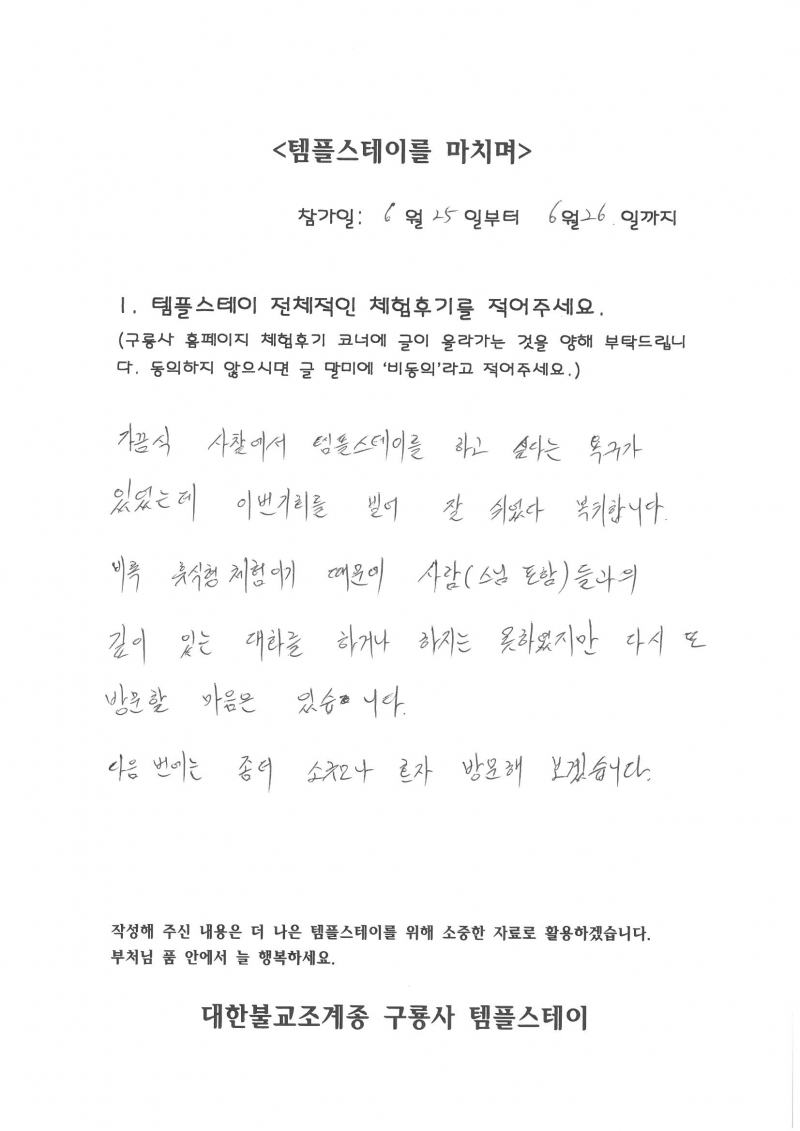 <템플스테이를 마치며>
참가일: 6월 25일부터 6월 26.일까지
1. 템플스테이 전체적인 체험후기를 적어주세요.
(구룡사 홈페이지 체험후기 코너에 글이 올라가는 것을 양해 부탁드립니
다. 동의하지 않으시면 글 말미에 '비동의'라고 적어주세요.)
가끔식 사찰에서 템플스테이를 하고 싶다는 욕구가
있었는데 이번기회를 빌어 잘 쉬었다 복귀합니다.
비록 휴식형 체험이기 때문에 사람(스님 포함)들과의
깊이 있는 대화를 하거나 하지는 못하였지만 다시 또
방문할 마음은 있습니다.
다음 번에는 좀더 소규모나 혼자 방문해 보겠습니다.
작성해 주신 내용은 더 나은 템플스테이를 위해 소중한 자료로 활용하겠습니다.
부처님 품 안에서 늘 행복하세요.
대한불교조계종 구룡사 템플스테이